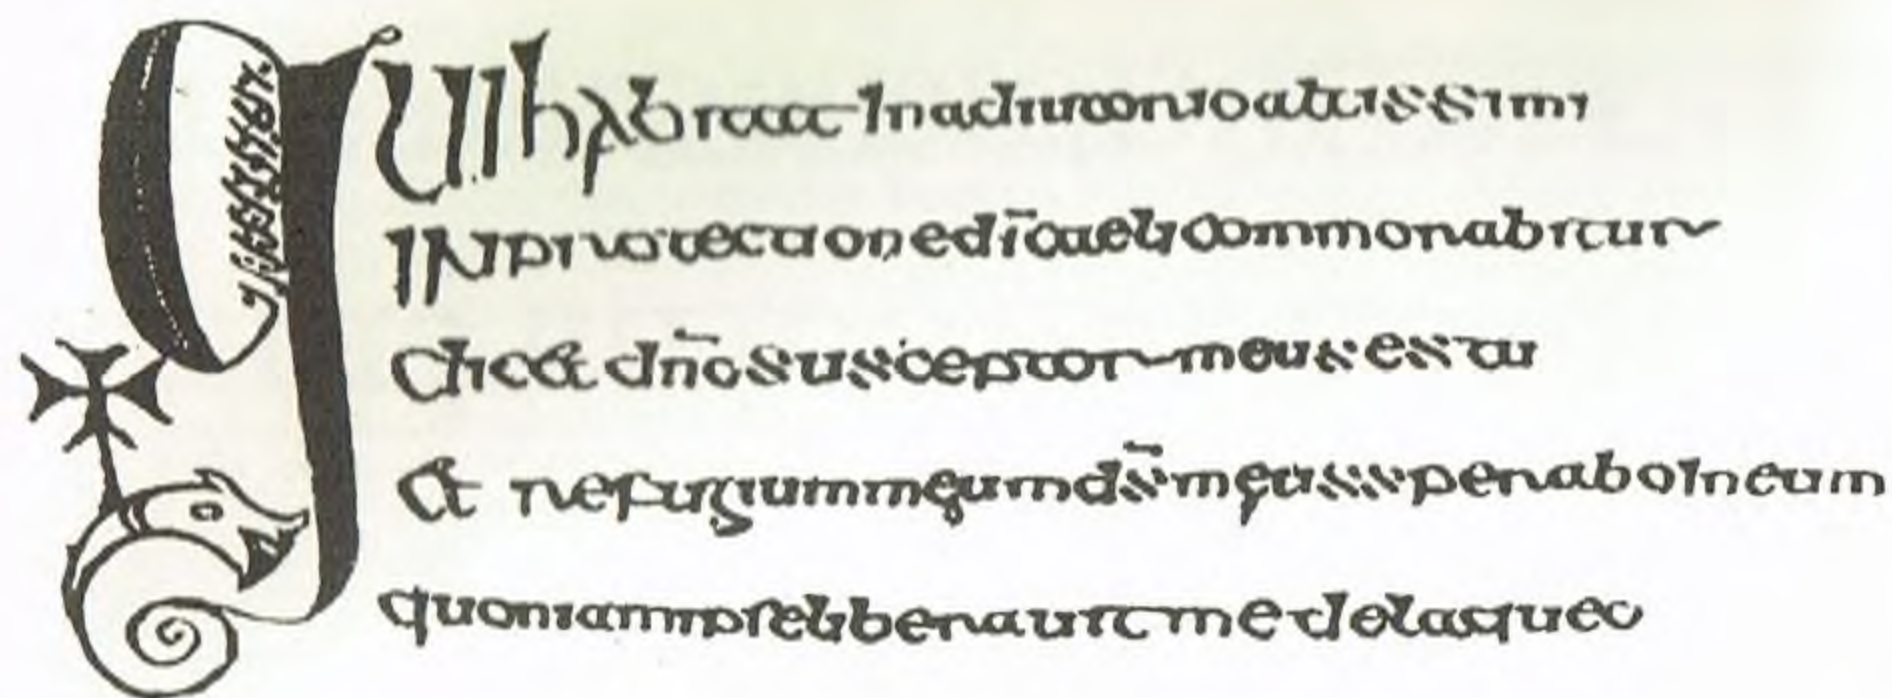 QUI habitat in adiutorio altissimi
IN protectione dī caeli commorabitur
dicet dn̄o susceptor meus es tu
et refugium meum ds̄ meus sperabo in eum
quoniam ipse liberauit me de laqueo